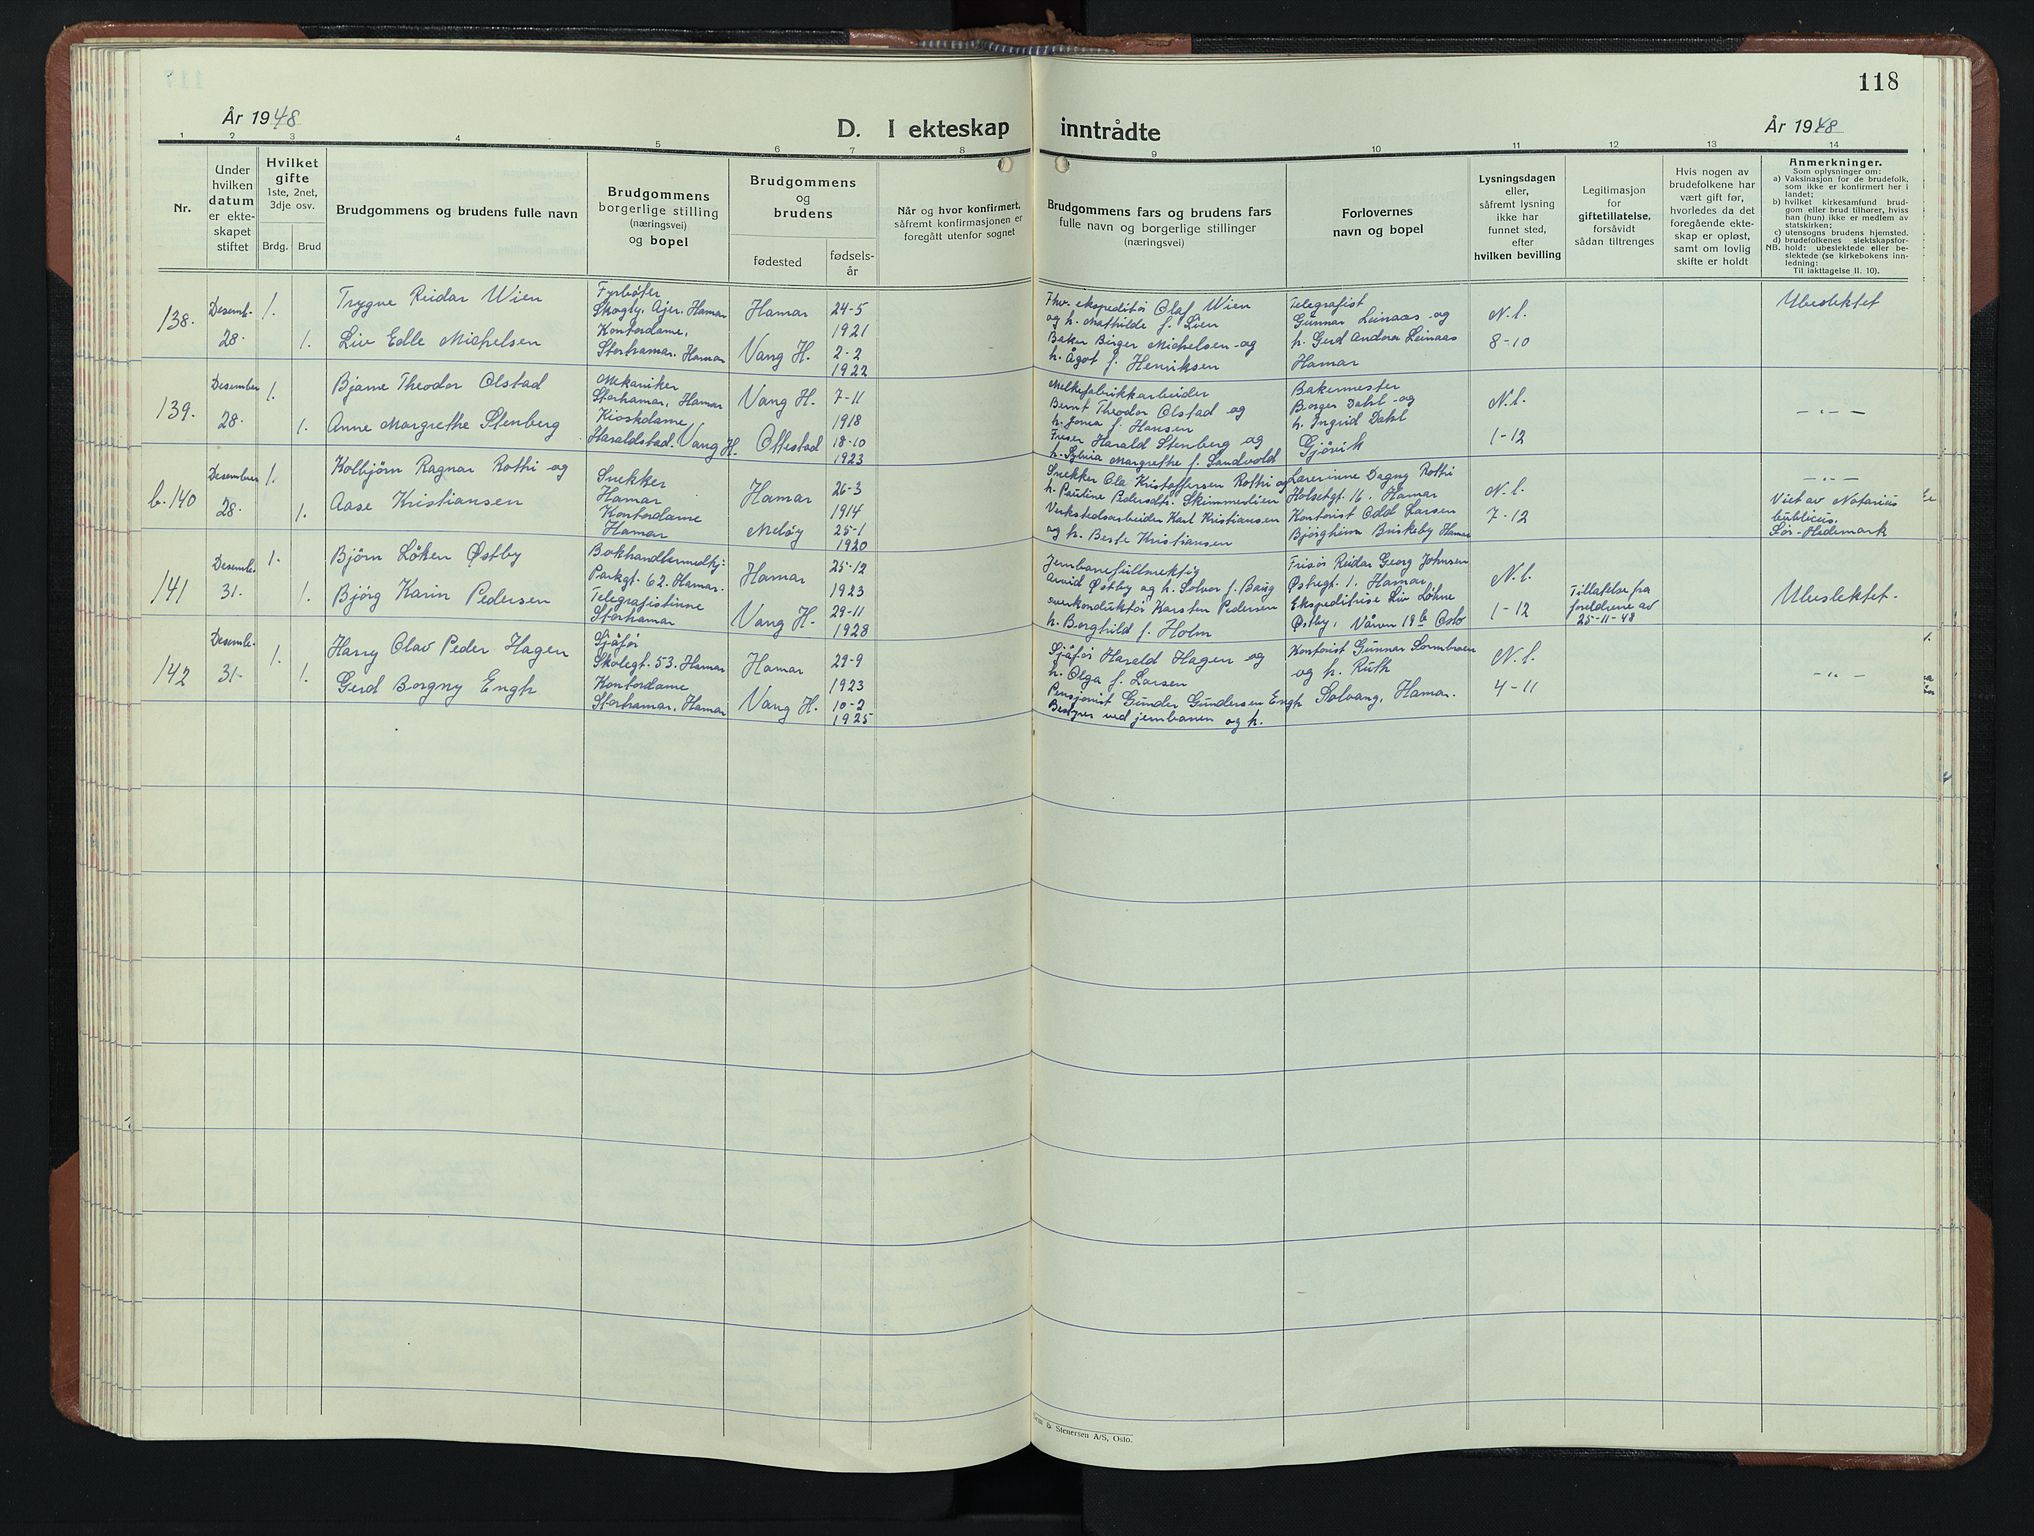 118
År 1948
D. I ekteskap inntrådte
År 1948
1 2 3 4 5 6 7 8 9 10 11 12 13 14
Nr.
Under hvilken datum er ekteskapet stiftet
Hvilket gifte
1ste, 2net, 3dje osv.
Brdg. Brud
Brudgommens og brudens fulle navn
Brudgommens borgerlige stilling (næringsvei) og bopel
Brudgommens og brudens
fødested
fødselsår
Når og hvor konfirmert, såfremt konfirmasjonen er foregått utenfor sognet
Brudgommens fars og brudens fars fulle navn og borgerlige stillinger (næringsvei)
Forlovernes navn og bopel
Lysningsdagen eller, såfremt lysning ikke har funnet sted, efter hvilken bevilling
Legitimasjon for giftetillatelse, forsåvidt sådan tiltrenges
Hvis nogen av brudefolkene har vært gift før, hvorledes da det foregående ekteskap er opløst, samt om lovlig skifte er holdt
Anmerkninger.
Som oplysninger om:
a) Vaksinasjon for de brudefolk, som ikke er konfirmert her i landet;
b) hvilket kirkesamfund brudgom eller brud tilhører, hviss han (hun) ikke er medlem av statskirken;
c) utensogns brudens hjemsted.
d) brudefolkenes slektskapsforhold: ubeslektede eller beslektede (se kirkebokens innledning:
NB.
Til iakttagelse II. 10).
138.
Desemb.
28.
1.
1.
Trygve Reidar Wien
Liv Edle Michelsen
Fyrbøter
Skogly, Ajer, Hamar
Kontordame,
Storhamar, Hamar
Hamar
24-5
1921
Vang H.
2-2
1922
Fhv. ekspeditør Olaf Wien
og h. Mathilde f. Lien
Baker Birger Michelsen og
h. Ågot f. Henriksen
Telegrafist
Gunnar Leinaas og
h. Gerd Andora Leinaas
Hamar
N.l.
8-10
Ubeslektet
139.
Desember
28.
1.
1.
Bjarne Theodor Olstad
Anne Margrethe Stenberg
Mekaniker
Storhamar, Hamar
Kioskdame
Haraldstad. Vang H.
Vang H.
7-11
1918
Ottestad
18-10
1923
Melkefabrikkarbeider
Bernt Theodor Olstad og
h. Jonea f. Hansen
Freser Harald Stenberg og
h. Sylvia Margrethe f. Sandvold
Bakermester
Borger Dahl og
h. Ingrid Dahl
Gjøvik
N.l.
1-12
— " —
b. 140
Desember
28.
1.
1.
Kolbjørn Ragnar Rothi og
Aase Kristiansen
Snekker
Hamar
Kontordame
Hamar
Hamar
26-3
1914
Meløy
25-1
1920
Snekker Ola Kristoffersen Rothi og
h. Pauline Pedersdtr. Skimmeslien
Verkstedsarbeider Karl Kristiansen
og h. Berte Kristiansen
Lærerinne Dagny Rothi
Holsetgt. 16, Hamar
Kontorist Odd Larsen
Bjørgheim Briskeby Hamar
N.l.
7-12
— " —
Viet av Notarius
publicus,
Sør-Hedemark
141
Desemb.
31.
1.
1.
Bjørn Løken Østby
Bjørg Karin Pedersen
Bokhandlermedhj.
Parkgt. 62. Hamar.
Telegrafistinne
Storhamar
Hamar
25-12
1923
Vang H.
29-11
1928
Jernbanefullmektig
Arvid Østby og h. Solvor f. Baug
overkonduktør Karsten Pedersen
h. Borghild f. Holm
Frisør Reidar Georg Johnsen
Østregt. 1. Hamar,
Ekspeditrise Liv Løkne
Østby, Våren 19b Oslo
N.l.
1-12
Tillatelse fra
foreldrene av
25-11-48
Ubeslektet.
142
Desemb.
31.
1.
1.
Harry Olav Peder Hagen
Gerd Borgny Engh
Sjåfør
Skolegt. 53. Hamar
Kontordame
Storhamar, Hamar
Hamar
29-9
1923
Vang H.
10-2
1925
Sjåfør Harald Hagen og
h. Olga f. Larsen
Pensjonist Gunder Gundersen Engh
Bestyrer ved jernbanen og h.
Kontorist Gunnar
og h. Ruth
Solvang, Hamar.
N.l.
4-11
— " —
& Stenersen A/S, Oslo.